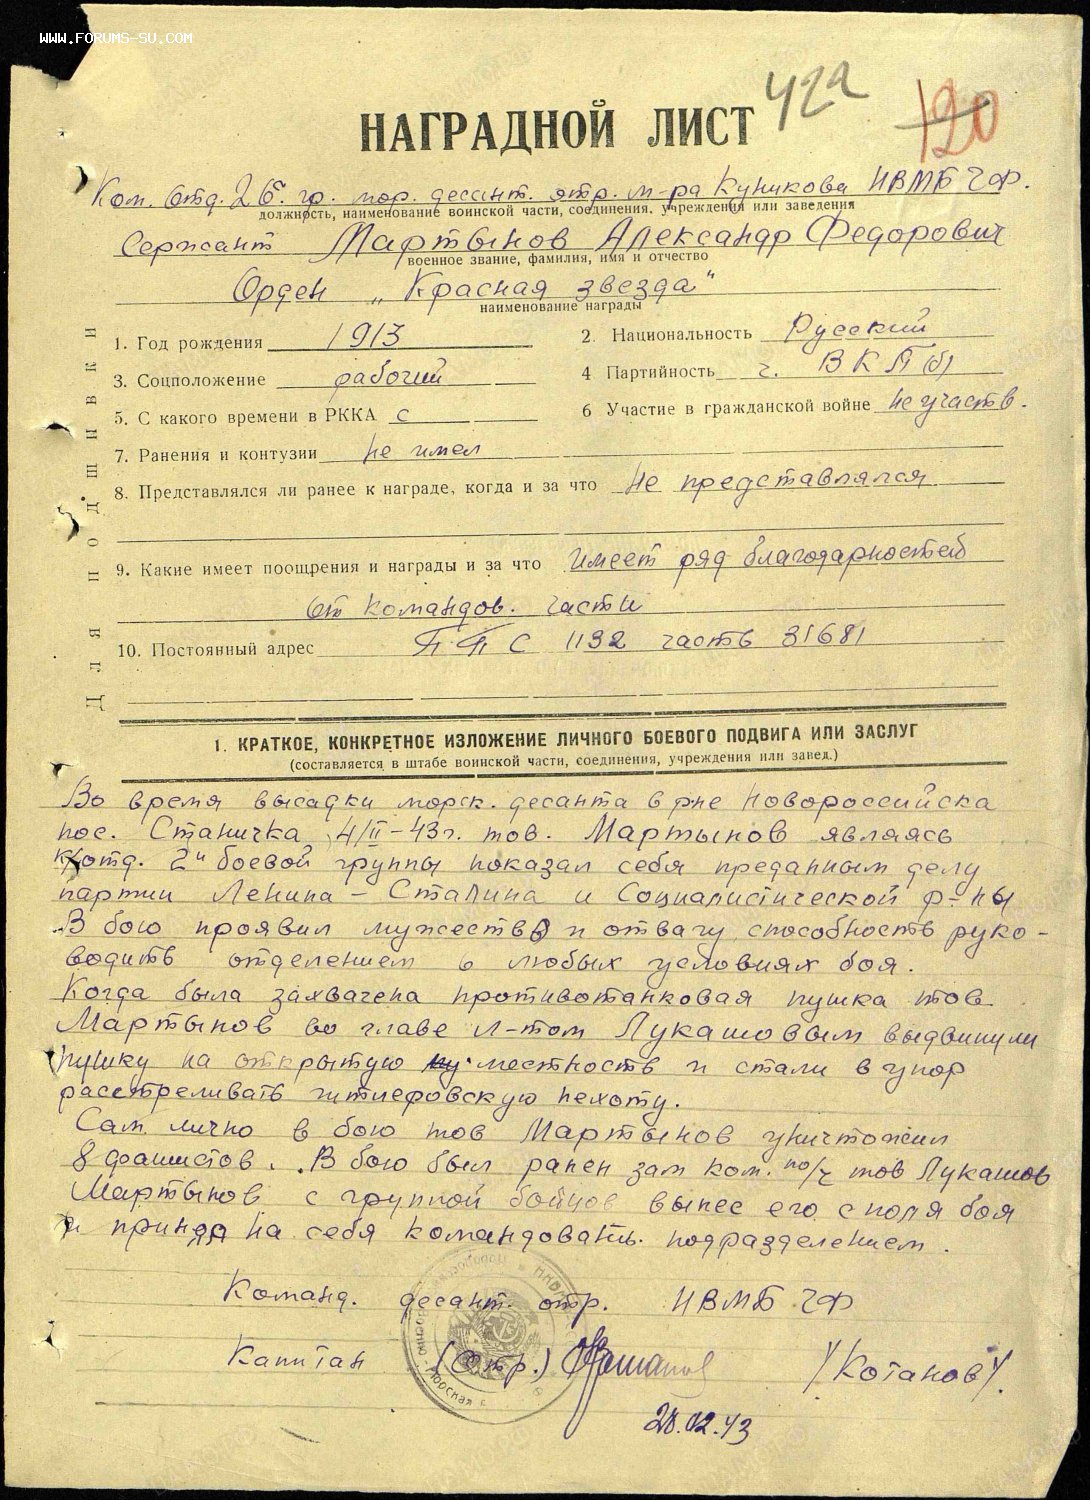 WWW.FORUMS-SU.COM
42а
120
НАГРАДНОЙ ЛИСТ
Ком. отд. 2 б. гр. мор. десант. отр. м-ра Куникова НВМБ ЧФ.
должность, наименование воинской части, соединения, учреждения или заведения
Сержант Мартынов Александр Федорович
военное звание, фамилия, имя и отчество
Орден „Красная звезда"
наименование награды
1. Год рождения 1913
2. Национальность Русский
3. Соцположение рабочий
4 Партийность ч. ВКП(б)
5. С какого времени в РККА с
6 Участие в гражданской войне не участв.
7. Ранения и контузии не имел
8. Представлялся ли ранее к награде, когда и за что не представлялся
9. Какие имеет поощрения и награды и за что имеет ряд благодарностей
от командов. части
10. Постоянный адрес ППС 1132 часть 31681
Для подшивки
1. КРАТКОЕ, КОНКРЕТНОЕ ИЗЛОЖЕНИЕ ЛИЧНОГО БОЕВОГО ПОДВИГА ИЛИ ЗАСЛУГ
(составляется в штабе воинской части, соединения, учреждения или завед.)
Во время высадки морск. десанта в рне Новороссийска
пос. Станичка 4/II-43г. тов. Мартынов являясь
к/отд. 2й боевой группы показал себя преданным делу
партии Ленина - Сталина и Социалистической р-ны
В бою проявил мужество и отвагу, способность руко-
водить отделением в любых условиях боя.
Когда была захвачена противотанковая пушка тов.
Мартынов во главе л-том Лукашовым выдвинули
пушку на открытую местность и стали в упор
расстреливать гитлеровскую пехоту.
Сам лично в бою тов Мартынов уничтожил
8 фашистов. В бою был ранен зам ком. по/ч тов Лукашов
Мартынов с группой бойцов вынес его с поля боя
и принял на себя командовать подразделением.
Команд. десант. отр. НВМБ ЧФ
Капитан /Котанов/
28.02.43